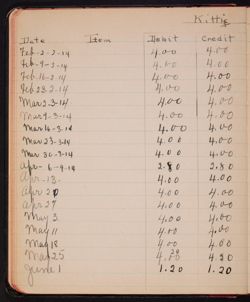 Kittie
Date Item Debit Credit
Feb-2-2-14 4.00 4.00
Feb-9-2-14 4.00 4.00
Feb-16-2-14 4.00 4.00
Feb 23-2-14 4.00 4.00
Mar 2-3-14 4.00 4.00
Mar 9-3-14 4.00 4.00
Mar 16-3-14 4.00 4.00
Mar 23-3-14 4.00 4.00
Mar 30-3-14 4.00 4.00
Apr-6-4-14 2.80 2.80
Apr-13- 4.00 4.00
Apr 20 4.00 4.00
Apr 27 4.00 4.00
May 3 4.00 4.00
May 11 4.00 4.00
May 18 4.00 4.00
May 25 4.20
June 1 1.20 1.20